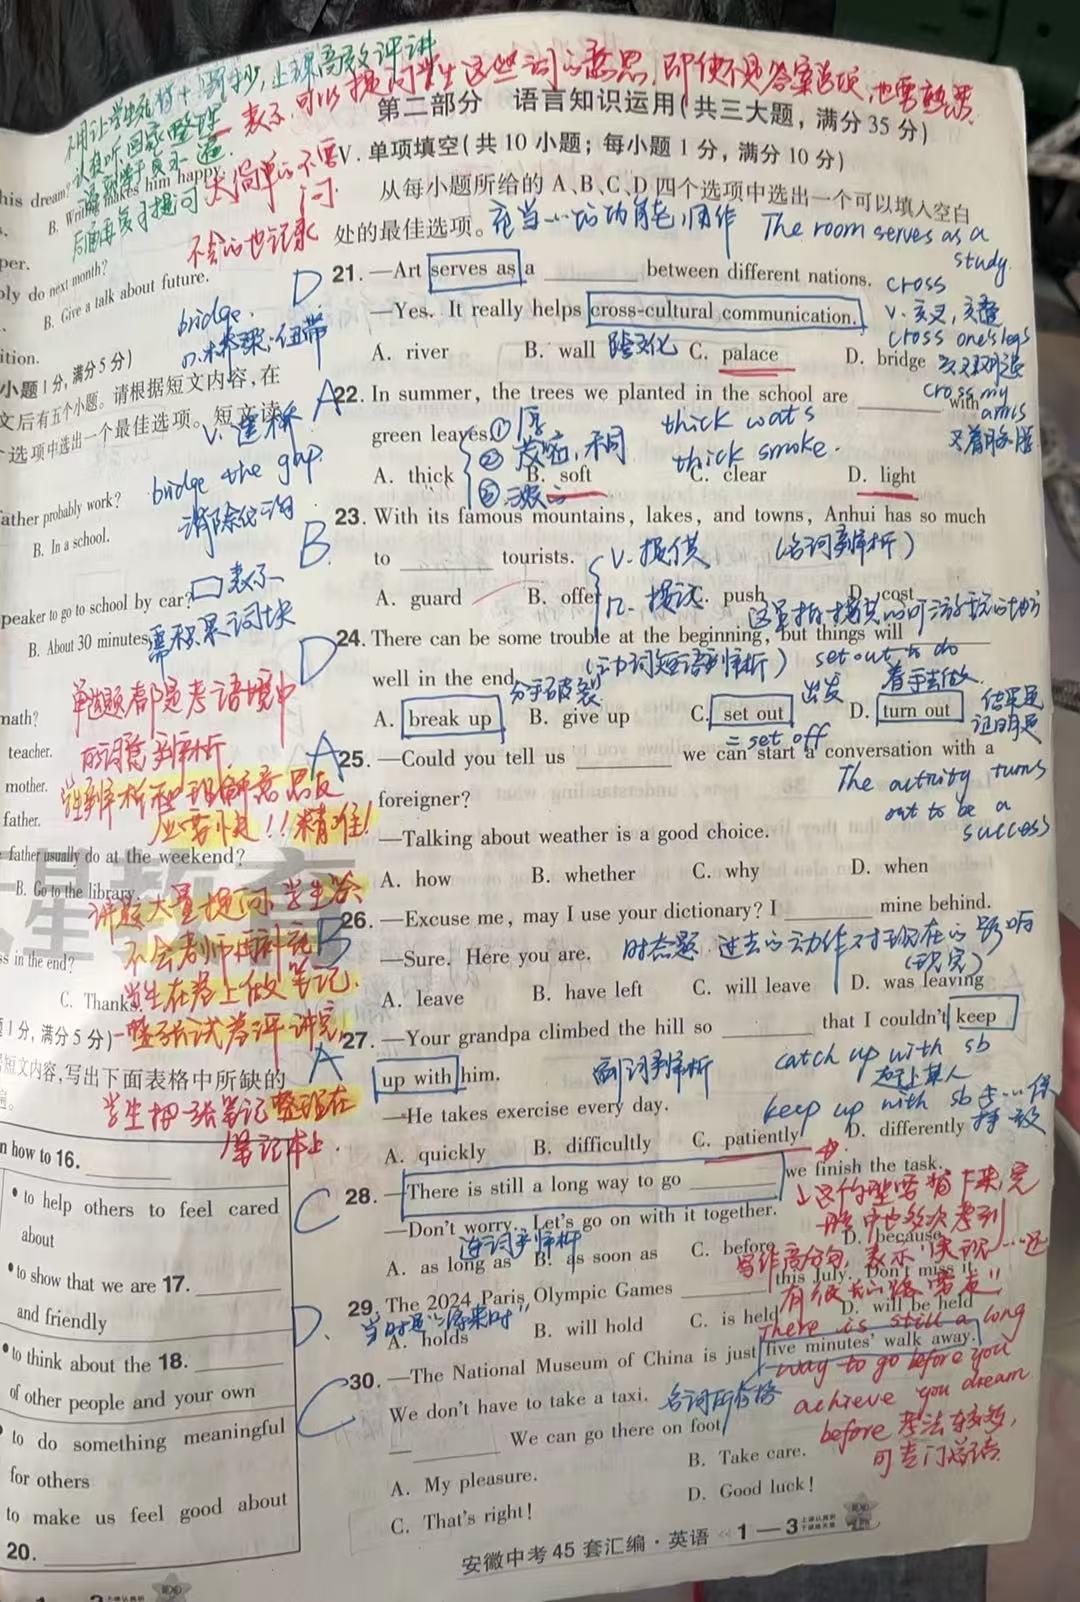 不用让学生
上课高效评讲
认真听,回家整理
表示可以提问学生这些词的意思,即使不是答案选项,也需熟悉.
太简单的不需要问.
后面再复习提问
不会的也记录
his dream?
B. Writing makes him happy.
per.
next month?
B. Give a talk about future.
ition.
小题1分,满分5分)
文后有五个小题。请根据短文内容,在
选项中选出一个最佳选项。短文读
father probably work?
B. In a school.
speaker to go to school by car?
B. About 30 minutes
math?
teacher.
mother.
father.
father usually do at the weekend?
B. Go to the library.
s in the end?
C. Thanks.
题1分,满分5分)
短文内容,写出下面表格中所缺的
n how to 16.
• to help others to feel cared
about
• to show that we are 17.
and friendly
• to think about the 18.
of other people and your own
to do something meaningful
for others
to make us feel good about
20.
bridge.
n.桥梁;纽带
v. 连桥
bridge the gap.
消除
表示
需积累词块
单选题都是考语境中
的词意辨析.
学生辨析和理解意思反
应要快!!精准!
讲题大量提问学生答
不会老师再补充
学生在卷上做笔记.
一整张试卷评讲完,
学生把一张笔记整理在
笔记本上.
第二部分 语言知识运用(共三大题,满分35分)
V. 单项填空(共10小题;每小题1分,满分10分)
从每小题所给的A、B、C、D四个选项中选出一个可以填入空白
处的最佳选项。
充当……的功能角色,用作 The room serves as a study.
D 21. —Art serves as a ______ between different nations.
—Yes. It really helps cross-cultural communication.
A. river B. wall C. palace D. bridge
跨文化
cross
v. 交叉,交叠
cross one's legs
交叉双腿
cross my arms
叉着胳膊
A 22. In summer, the trees we planted in the school are ______ with
green leaves.
A. thick B. soft C. clear D. light
①厚
②茂密,
③浓的
thick coats
thick smoke.
B. 23. With its famous mountains, lakes, and towns, Anhui has so much
to ______ tourists.
A. guard B. offer C. push D. cost
v. 提供
n. 提议
(动词辨析)
D 24. There can be some trouble at the beginning, but things will ______
well in the end.
A. break up B. give up C. set out D. turn out
(动词短语辨析)
set out to do
着手去做.
分手破裂
出发
= set off
结果是
证明是
The activity turns
out to be a
success
A 25. —Could you tell us ______ we can start a conversation with a
foreigner?
—Talking about weather is a good choice.
A. how B. whether C. why D. when
B 26. —Excuse me, may I use your dictionary? I ______ mine behind.
—Sure. Here you are.
时态题.过去的动作对现在的影响
(现完)
A. leave B. have left C. will leave D. was leaving
A 27. —Your grandpa climbed the hill so ______ that I couldn't keep
up with him.
—He takes exercise every day.
A. quickly B. difficultly C. patiently D. differently
副词辨析
catch up with sb
赶上某人
keep up with sb 与…保持一致
C 28. —There is still a long way to go ______ we finish the task.
—Don't worry. Let's go on with it together.
连词辨析
A. as long as B. as soon as C. before D. because
D. 29. The 2024 Paris Olympic Games ______ this July. Don't miss it.
当时是"将来时"
A. holds B. will hold C. is held D. will be held
There is still a long
way to go before you
achieve you dream
before 考法较多,
可专门总结.
C 30. —The National Museum of China is just five minutes' walk away.
We don't have to take a taxi.
名词所有格
— ______ We can go there on foot.
A. My pleasure. B. Take care.
C. That's right! D. Good luck!
安徽中考45套汇编·英语 1—3